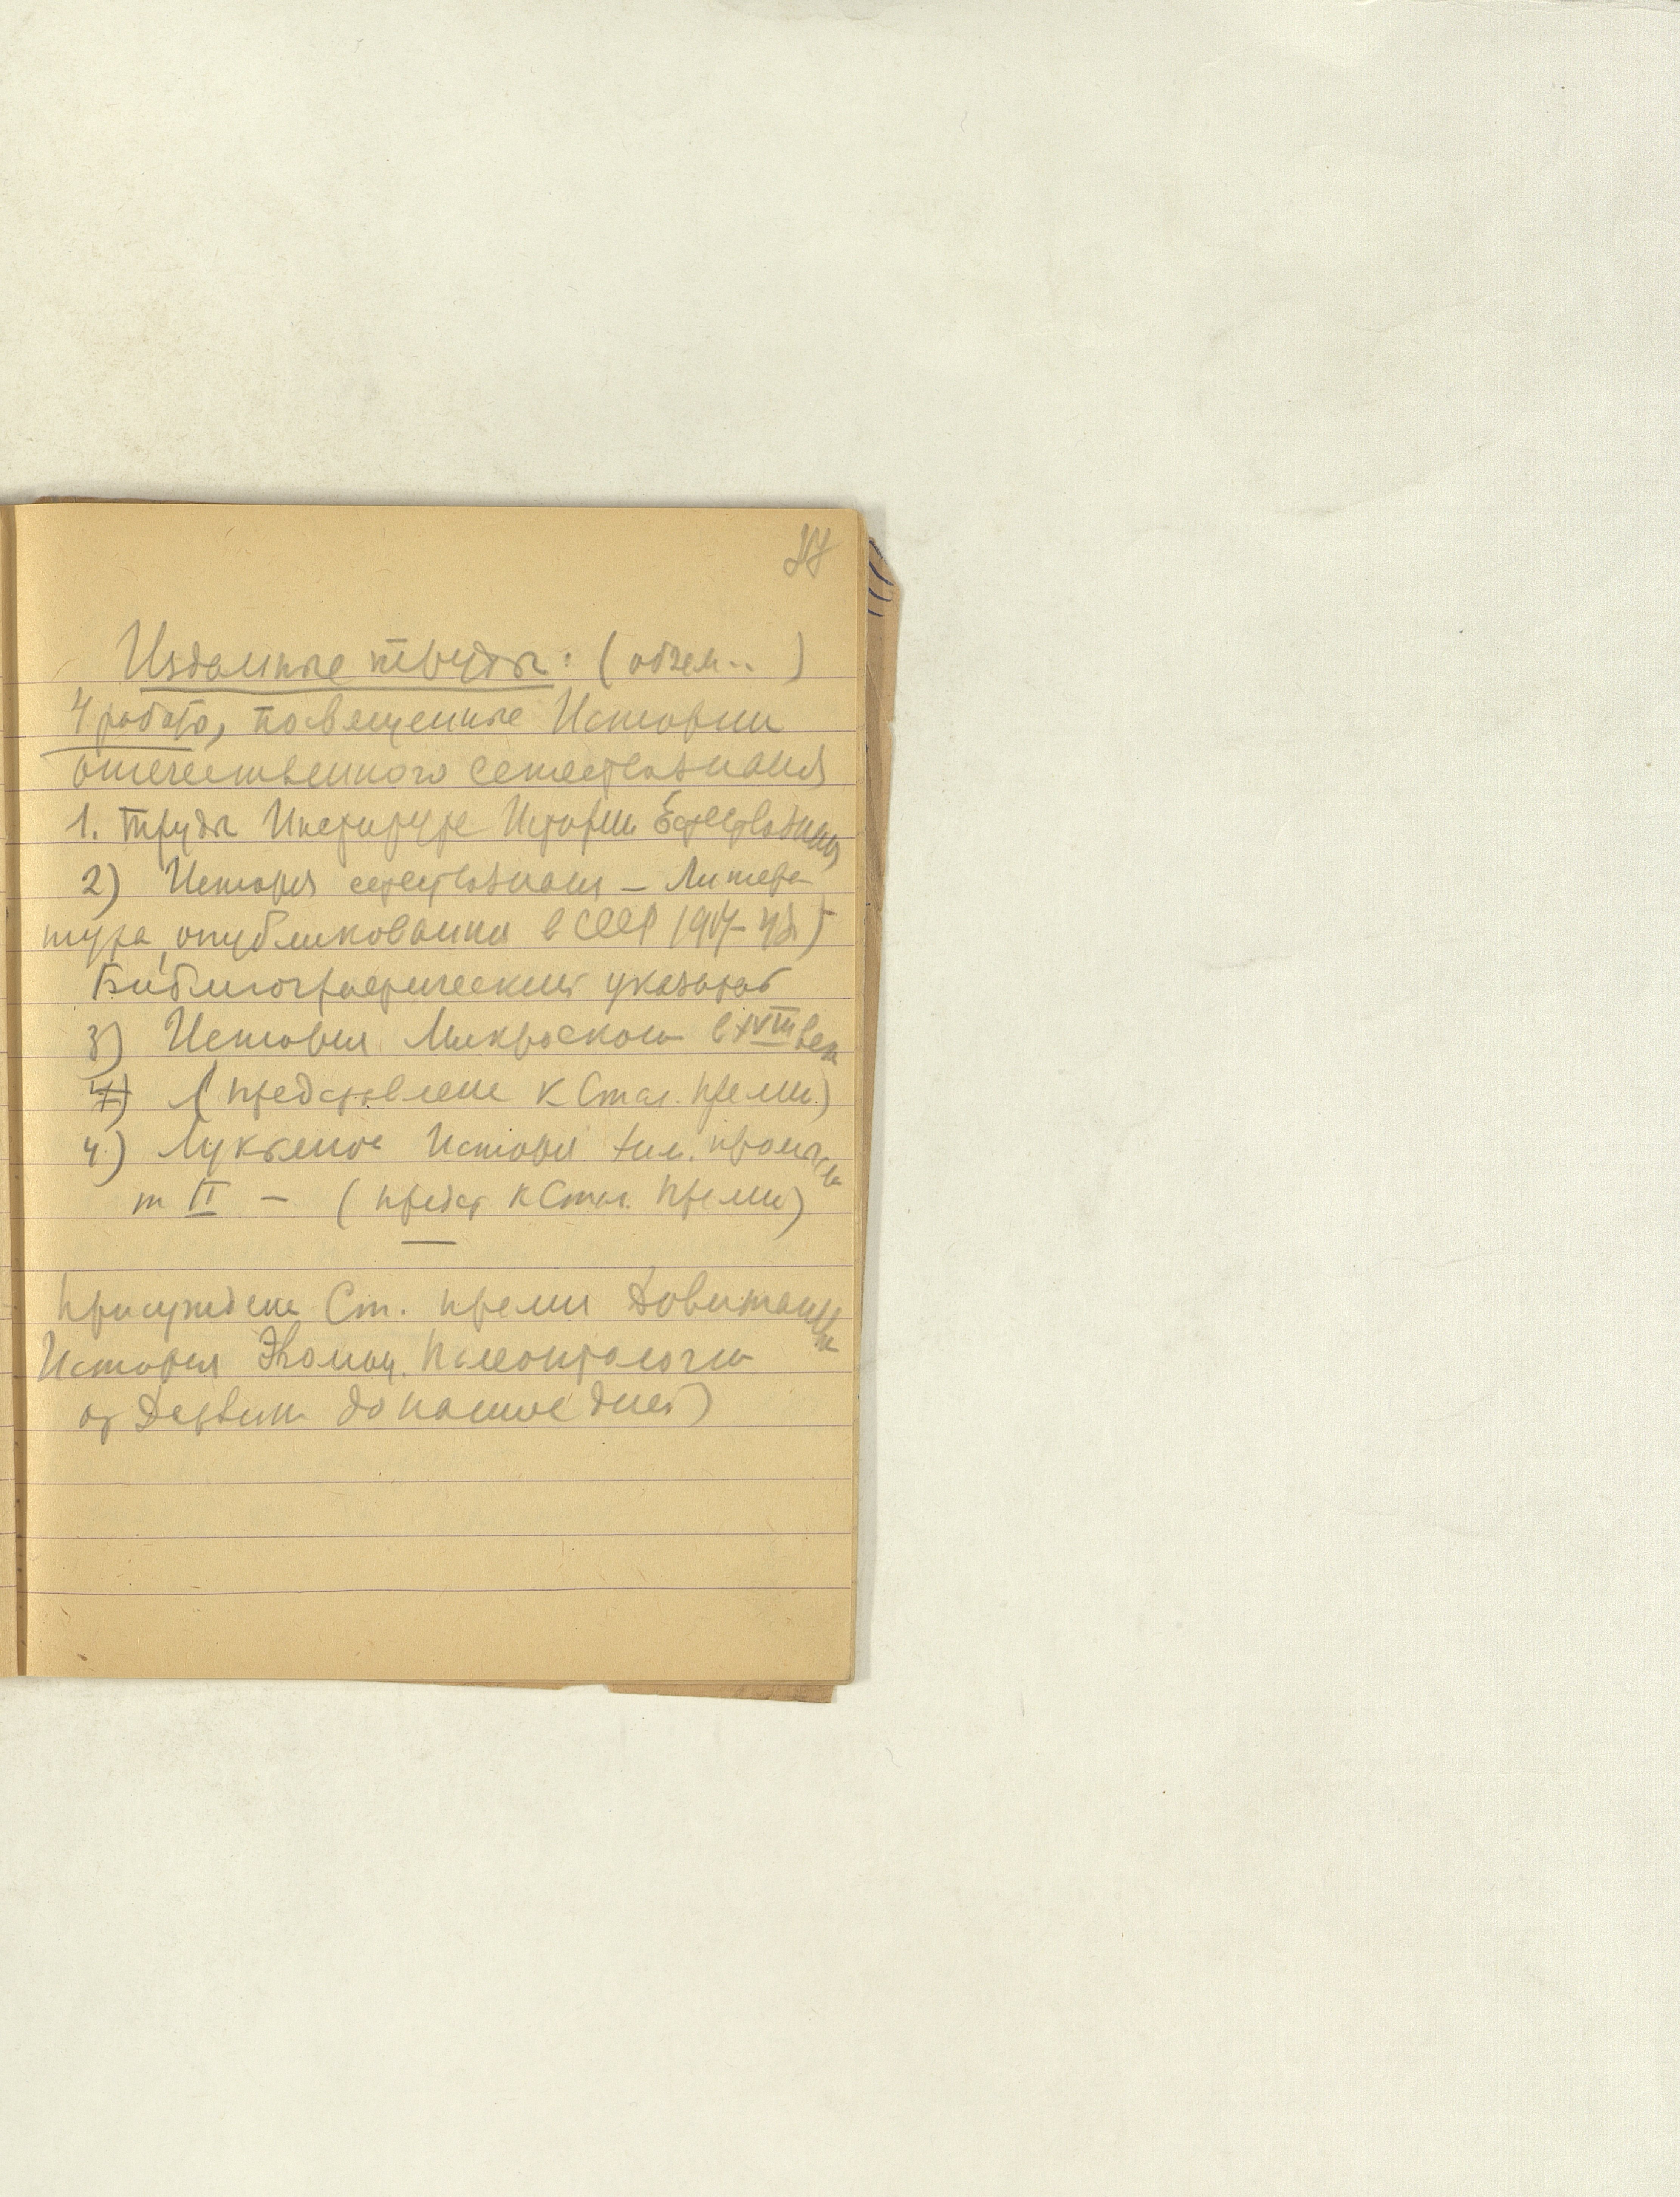 Изданные труды: (объем..)
4 работы, посвещенные Истории
отечественного естествознания
1. Труды Института Истории Естествознания
2) История естествознания – Литера
тура, опубликованная в СССР 1917–48)
Библиографический указатель
3) История Микроскопа в XVIII веке
4) (представлена к Стал. премии)
4) Лукьянов История хим. промыс
т II – (предст к Стал. премии)
Присуждена Ст. премия Давиташвили
История Эволюц. Палеонтологии
от Дарвина до наших дней)